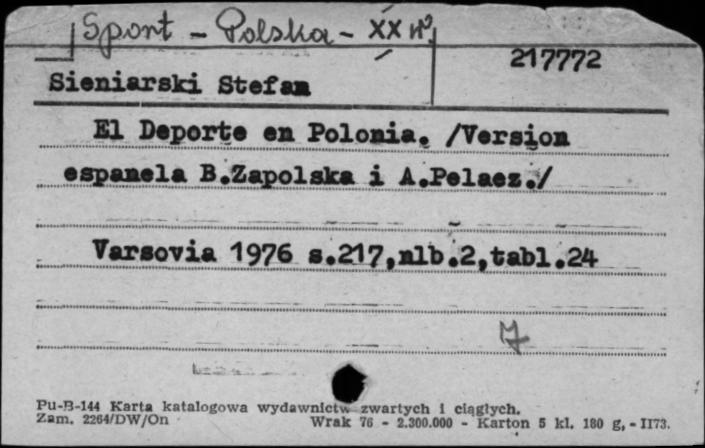 Sport - Polska - XX w.
217772
Sieniarski Stefan
El Deporte en Polonia. /Version
espanela B.Zapolska i A.Pelaez./
Varsovia 1976 s.217,nlb.2,tabl.24
Pu-B-144 Karta katalogowa wydawnictw zwartych i ciągłych.
Zam. 2264/DW/On Wrak 76 - 2.300.000 - Karton 5 kl. 180 g, - II73.